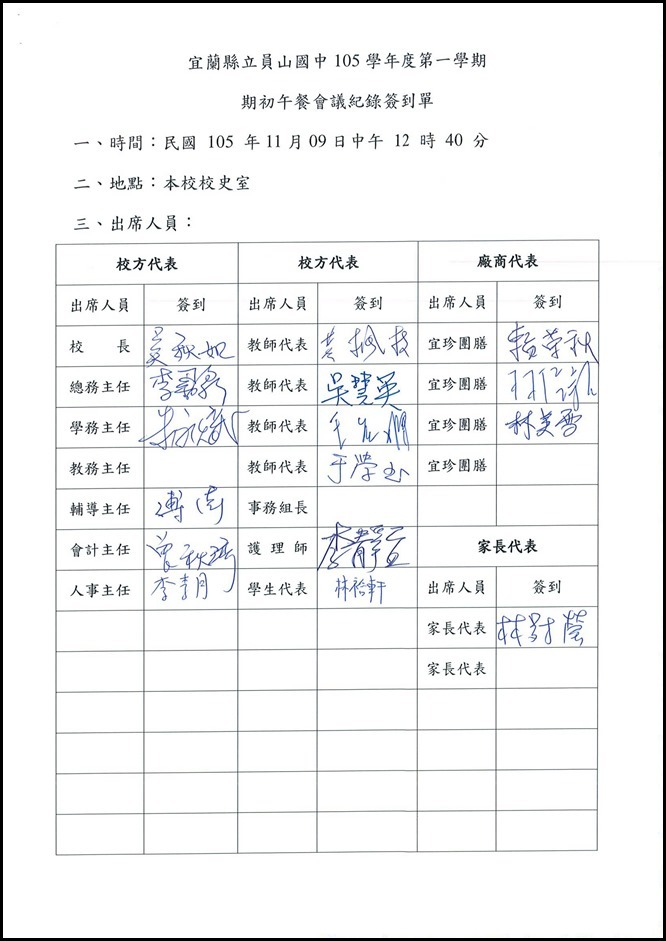 宜蘭縣立員山國中 105 學年度第一學期
期初午餐會議紀錄簽到單
一、時間：民國 105 年11月09日中午 12 時 40 分
二、地點：本校校史室
三、出席人員：
校方代表 校方代表 廠商代表
出席人員 簽到 出席人員 簽到 出席人員 簽到
校 長 教師代表 宜珍團膳
總務主任 教師代表 吳慧英 宜珍團膳
學務主任 教師代表 宜珍團膳 林美雪
教務主任 教師代表 于學玉 宜珍團膳
輔導主任 事務組長
會計主任 護理師 李靜宜 家長代表
人事主任 李青月 學生代表 出席人員 簽到
家長代表
家長代表